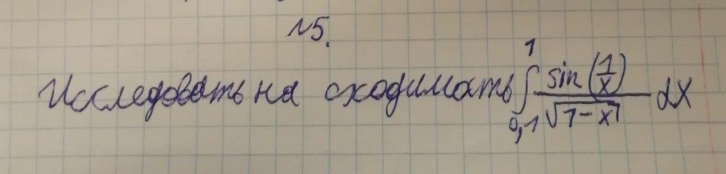 №5.
Исследовать на сходимость ∫_{0,1}^{1} sin(1/x)/√(1-x) dx